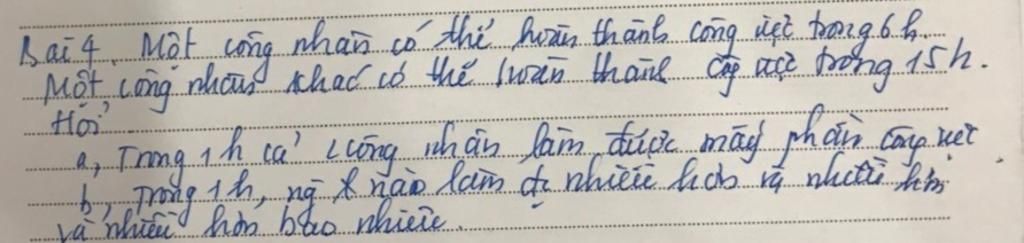 Bài 4. Một công nhân có thể hoàn thành công việc trong 6 h.
Một công nhân khác có thể hoàn thành công việc trong 15 h.
Hỏi
a, Trong 1h cả 2 công nhân làm được mấy phần công việc
b, Trong 1h, ng nào làm đc nhiều hơn và nhiều hơn
và nhiều hơn bao nhiêu.